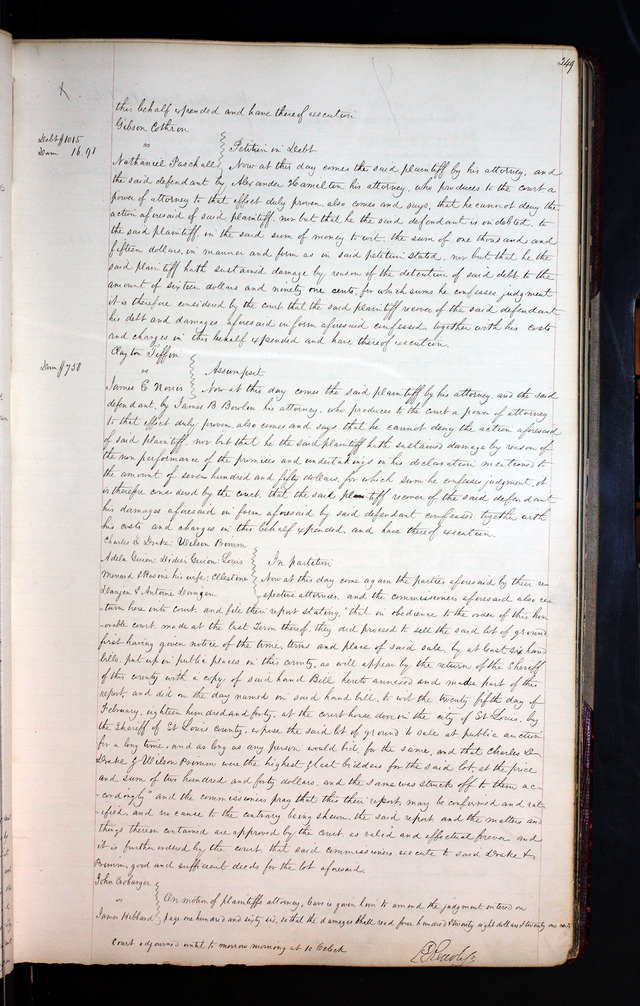 349
this behalf expended and have thereof execution
Gibson Cothron
Debt $1015
Dam 16.91
vs
Petition in Debt
Nathaniel Paschall
Now at this day comes the said plaintiff by his attorney, and
the said defendant by Alexander Hamilton his attorney, who produces to the court a
power of attorney to that effect duly proven, also comes and says, that he cannot deny the
action aforesaid of said plaintiff, nor but that he the said defendant is indebted to
the said plaintiff in the said sum of money to wit, the sum of one thousand and
fifteen dollars, in manner and form as in said petition stated, nor but that he the
said plaintiff hath sustained damage by reason of the detention of said debt to the
amount of sixteen dollars and ninety one cents, for which sums he confesses judgment
it is therefore considered by the court that the said plaintiff recover of the said defendant
his debt and damages aforesaid in form aforesaid confessed, together with his costs
and charges in this behalf expended and have thereof execution.
Clayton Tiffin
Dam $750
vs
Assumpsit
James C Norris
Now at this day comes the said plaintiff by his attorney, and the said
defendant, by James B Bowlin his attorney, who produces to the court a power of attorney
to that effect duly proven, also comes and says that he cannot deny the action aforesaid
of said plaintiff, nor but that he the said plaintiff hath sustained damage by reason of
the non performance of the promises and undertakings in his declaration mentioned to
the amount of seven hundred and fifty dollars, for which sum he confesses judgment, it
is therefore considered by the court, that the said plaintiff recover of the said defendant
his damages aforesaid in form aforesaid by said defendant confessed together with
his costs and charges in this behalf expended, and have thereof execution.
Charles D Drake: Wilson Primm
Adela Guion: Didier Guion: Louis
In partition
Menard & Rosine his wife: Celestine
Now at this day come again the parties aforesaid by their re-
Dangen & Antoine Dangen
spective attornies, and the commissioners aforesaid also re-
turn here into court, and file their report stating, "that in obedience to the order of this hon-
-orable court made at the last Term thereof, they did proceed to sell the said lot of ground
first having given notice of the time, terms and place of said sale, by at least six hand
bills, put up in public places in this county, as will appear by the return of the Sheriff
of this county with a copy of said hand Bill hereto annexed and made part of this
report, and did on the day named in said hand bill, to wit the twenty fifth day of
February, eighteen hundred and forty, at the court house door in the city of St Louis, by
the Sheriff of St Louis county, expose the said lot of ground to sale at public auction
for a long time, and as long as any person would bid for the same, and that Charles D
Drake & Wilson Primm were the highest & last bidders for the said lot, at the price
and sum of two hundred and forty dollars, and the same was struck off to them ac-
-cordingly" and the commissioners pray that this their report, may be confirmed and rat-
-ified, and no cause to the contrary being shewn, the said report and the matters and
things therein contained are approved by the court as valid and effectual forever and
it is further ordered by the court that said commissioners execute to said Drake &
Primm, good and sufficient deeds for the lot aforesaid.
John
vs
On motion of plaintiffs attorney, leave is given him to amend the judgment entered on
James Hibbard
page one hundred and sixty six, so that the damages shall read four hundred & twenty eight dollars & twenty one cents
Court adjourned until to morrow morning at 10 Oclock